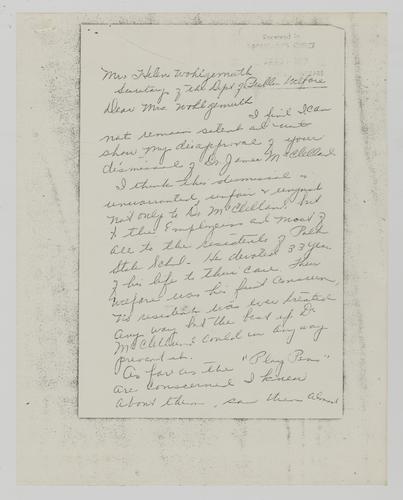 Received in
Mrs Helen Wohlgemuth
Secretary of the Dept of Public Welfare
Dear Mrs Wohlgemuth
I find I can
not remain silent
show my disapproval of your
dismissal of Dr. James McClelland
I think this dismissal is
unwarranted, unfair & unjust
not only to Dr McClelland but
to the Employees and most of
all to the residents of Polk
State School. He devoted 33 years
of his life to their care. Their
Welfare was his first Conscern,
no resident was ever treated
any way but the best if Dr
McClelland could in any way
prevent it.
As far as the "Play Pens"
are conscerned I knew
about them, saw them almost